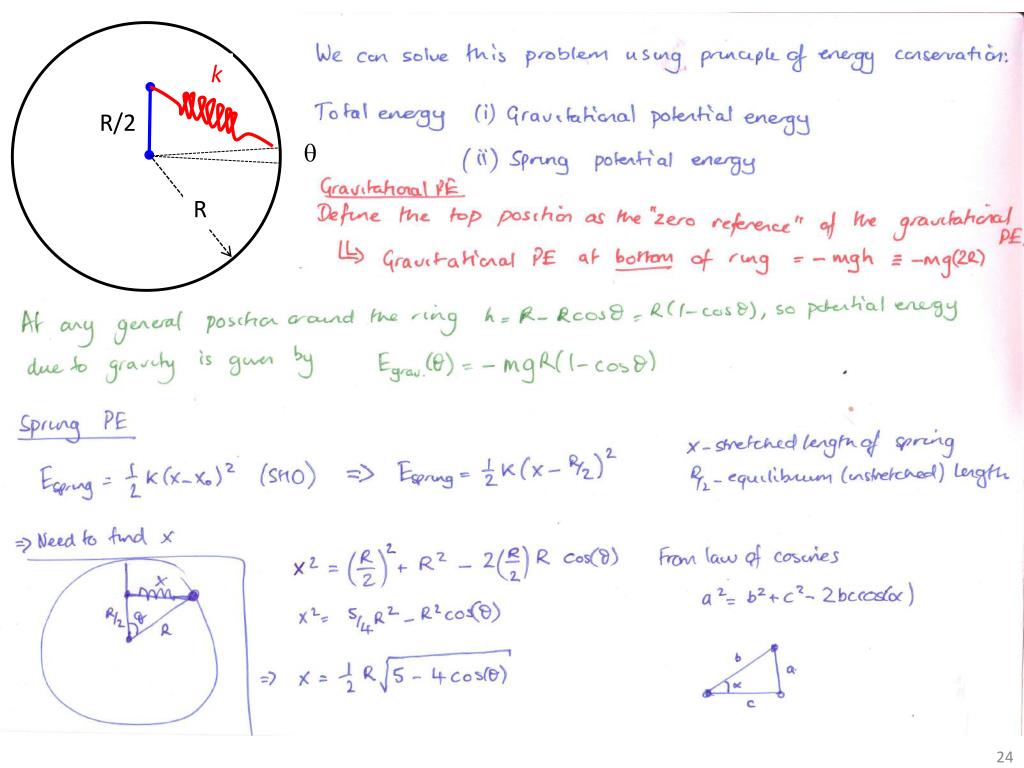 k
R/2
θ
R
We can solve this problem using principle of energy conservation:
Total energy (i) Gravitational potential energy
(ii) Spring potential energy
Gravitational PE
Define the top position as the "zero reference" of the gravitational PE
↳ Gravitational PE at bottom of ring = -mgh ≡ -mg(2R)
At any general position around the ring h = R - Rcosθ = R(1-cosθ), so potential energy
due to gravity is given by E_grav.(θ) = -mgR(1-cosθ)
Spring PE
E_spring = 1/2 k(x-x₀)² (SHO) ⇒ E_spring = 1/2 k(x - R/2)²
x - stretched length of spring
R/2 - equilibrium (unstretched) length
⇒ Need to find x
x
R/2
θ
R
x² = (R/2)² + R² - 2(R/2)R cos(θ)
From law of cosines
x² = 5/4R² - R²cos(θ)
a² = b² + c² - 2bccos(α)
⇒ x = 1/2 R√(5 - 4cos(θ))
b
a
α
c
24